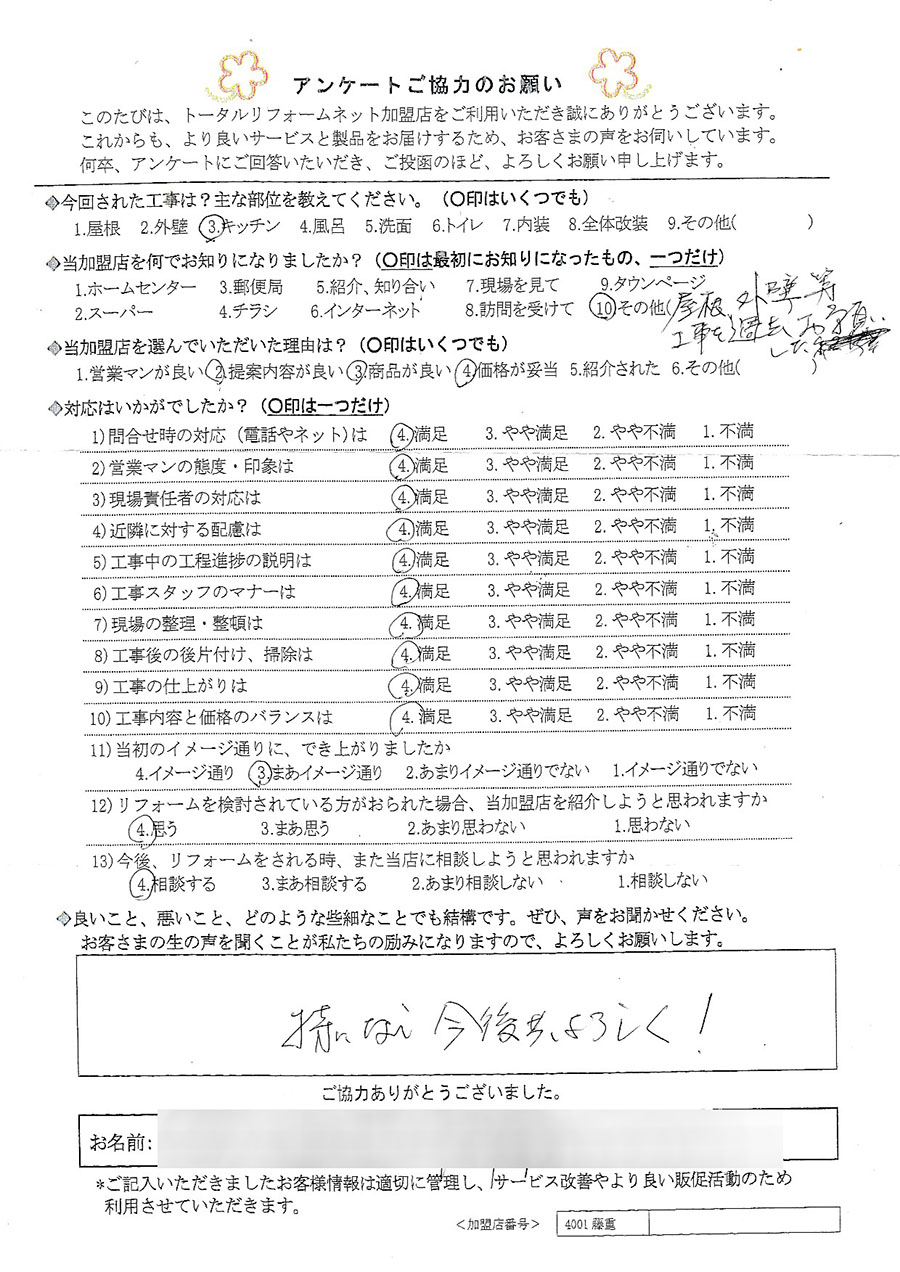 アンケートご協力のお願い
このたびは、トータルリフォームネット加盟店をご利用いただき誠にありがとうございます。
これからも、より良いサービスと製品をお届けするため、お客さまの声をお伺いしています。
何卒、アンケートにご回答いたいだき、ご投函のほど、よろしくお願い申し上げます。
◈今回された工事は?主な部位を教えてください。(〇印はいくつでも)
1.屋根 2.外壁 3.キッチン 4.風呂 5.洗面 6.トイレ 7.内装 8.全体改装 9.その他( )
◈当加盟店を何でお知りになりましたか?(〇印は最初にお知りになったもの、一つだけ)
1.ホームセンター 3.郵便局 5.紹介、知り合い 7.現場を見て 9.タウンページ
2.スーパー 4.チラシ 6.インターネット 8.訪問を受けて 10.その他(屋根、外壁等
工事を過去お願い
した )
◈当加盟店を選んでいただいた理由は?(〇印はいくつでも)
1.営業マンが良い 2.提案内容が良い 3.商品が良い 4.価格が妥当 5.紹介された 6.その他( )
◈対応はいかがでしたか?(〇印は一つだけ)
1)問合せ時の対応(電話やネット)は 4.満足 3.やや満足 2.やや不満 1.不満
2)営業マンの態度・印象は 4.満足 3.やや満足 2.やや不満 1.不満
3)現場責任者の対応は 4.満足 3.やや満足 2.やや不満 1.不満
4)近隣に対する配慮は 4.満足 3.やや満足 2.やや不満 1.不満
5)工事中の工程進捗の説明は 4.満足 3.やや満足 2.やや不満 1.不満
6)工事スタッフのマナーは 4.満足 3.やや満足 2.やや不満 1.不満
7)現場の整理・整頓は 4.満足 3.やや満足 2.やや不満 1.不満
8)工事後の後片付け、掃除は 4.満足 3.やや満足 2.やや不満 1.不満
9)工事の仕上がりは 4.満足 3.やや満足 2.やや不満 1.不満
10)工事内容と価格のバランスは 4.満足 3.やや満足 2.やや不満 1.不満
11)当初のイメージ通りに、でき上がりましたか
4.イメージ通り 3.まあイメージ通り 2.あまりイメージ通りでない 1.イメージ通りでない
12)リフォームを検討されている方がおられた場合、当加盟店を紹介しようと思われますか
4.思う 3.まあ思う 2.あまり思わない 1.思わない
13)今後、リフォームをされる時、また当店に相談しようと思われますか
4.相談する 3.まあ相談する 2.あまり相談しない 1.相談しない
◈良いこと、悪いこと、どのような些細なことでも結構です。ぜひ、声をお聞かせください。
お客さまの生の声を聞くことが私たちの励みになりますので、よろしくお願いします。
特になし 今後共、よろしく!
ご協力ありがとうございました。
お名前:
*ご記入いただきましたお客様情報は適切に管理し、サービス改善やより良い販促活動のため
利用させていただきます。
<加盟店番号> 4001 藤重